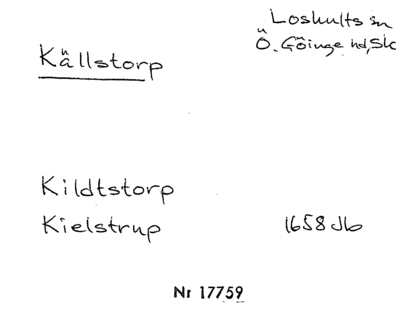 Källstorp
Loshults sn
Ö. Göinge hd, Sk
Kildtstorp
Kielstrup 1658 Jb
Nr 17759